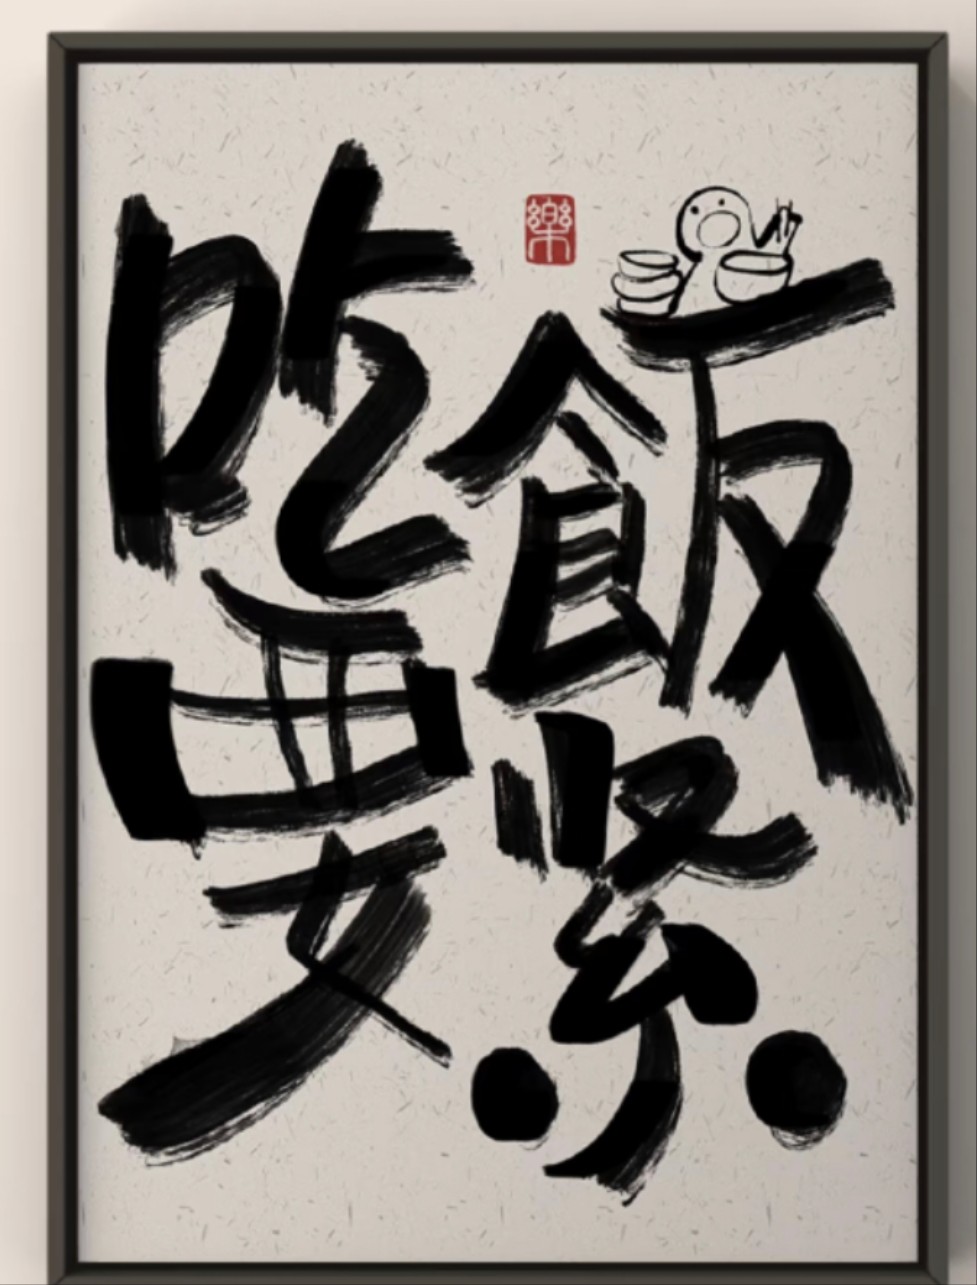 吃飯
要紧
樂